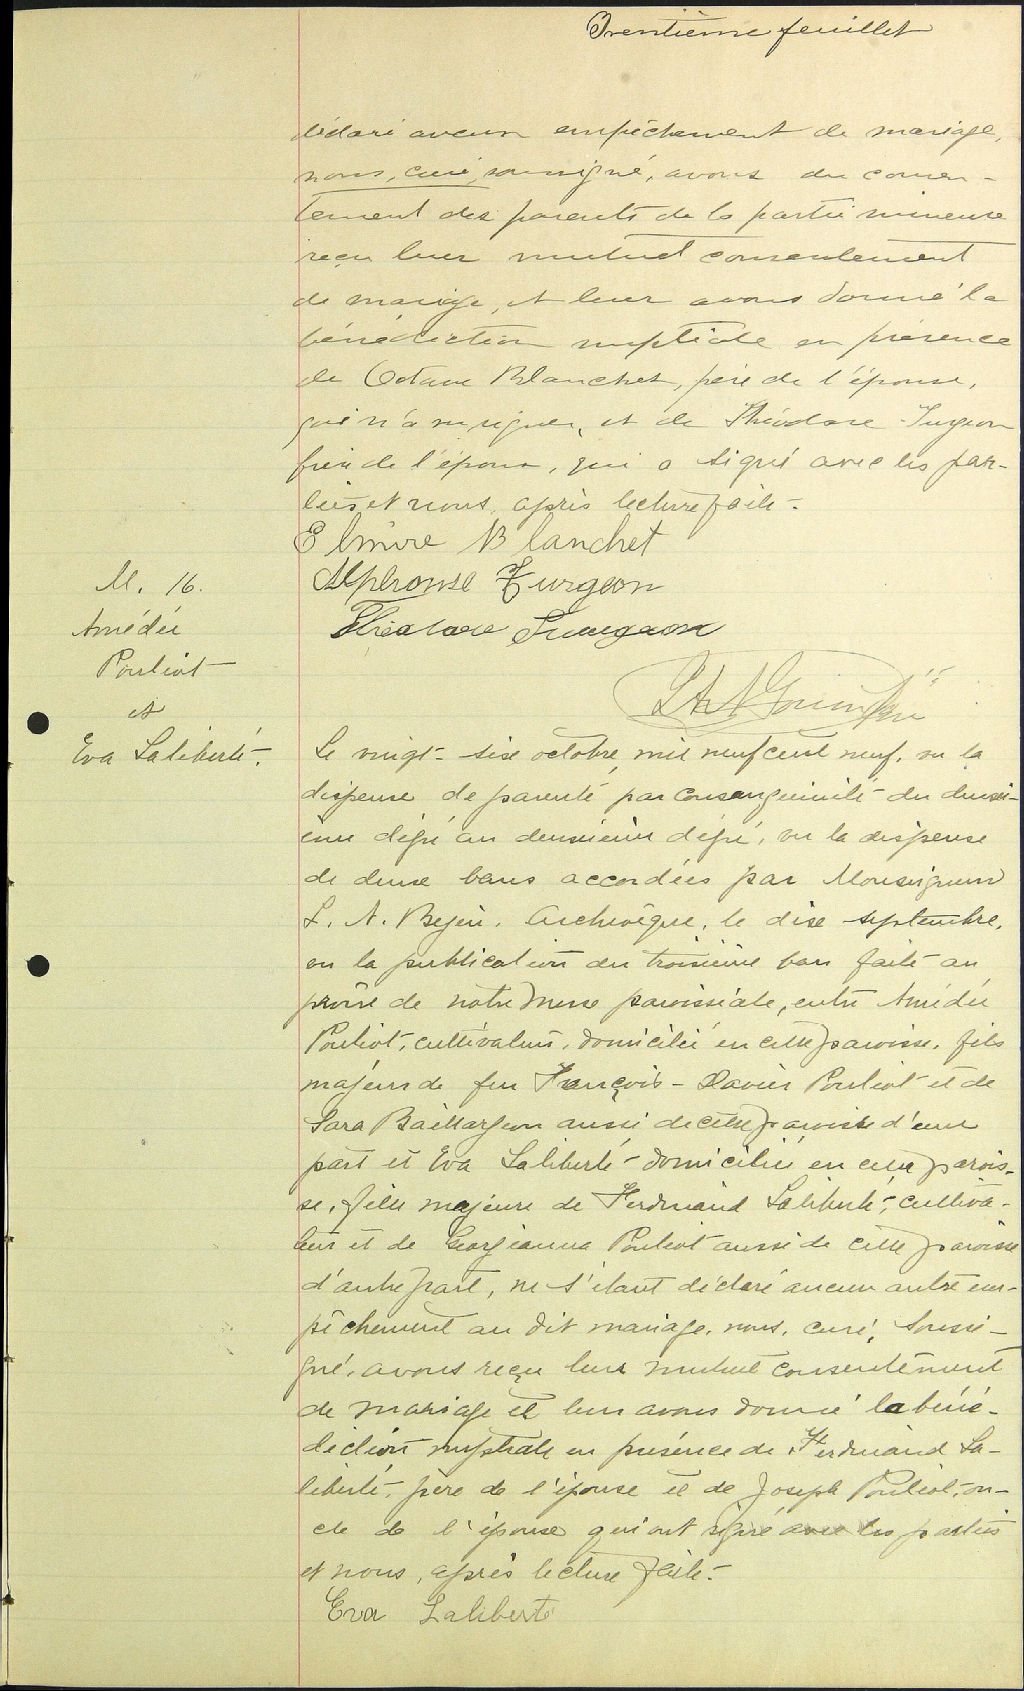 Trentième feuillet
déclaré aucun empêchement de mariage,
nous, curé, soussigné, avons du consen-
tement des parents de la partie mineure
reçu leur mutuel consentement
de mariage, et leur avons donné la
bénédiction nuptiale en présence
de Octave Blanchet, père de l'épouse,
qui n'a su signer, et de Théodore Turgeon
frère de l'époux, qui a signé avec les par-
ties et nous, après lecture faite.
Elmire Blanchet
Alphonse Turgeon
Théodore Turgeon
Ptre
M. 16.
Amédée
Pouliot
et
Eva Laliberté.
Le vingt-six octobre mil neuf cent neuf, vu la
dispense de parenté par consanguinité du deuxi-
ème degré au deuxième degré, vu la dispense
de deux bans accordées par Monseigneur
L. N. Bégin, Archevêque, le dix septembre,
vu la publication du troisième ban faite au
prône de notre Messe paroissiale, entre Amédée
Pouliot, cultivateur, domicilié en cette paroisse, fils
majeur de feu François-Xavier Pouliot et de
Sara Baillargeon aussi de cette paroisse d'une
part et Eva Laliberté domiciliée en cette parois-
se, fille majeure de Ferdinand Laliberté, cultiva-
teur et de Georgianna Pouliot aussi de cette paroisse
d'autre part, ne s'étant déclaré aucun autre em-
pêchement au dit mariage, nous, curé, soussi-
gné, avons reçu leur mutuel consentement
de mariage et leur avons donné la béné-
diction nuptiale en présence de Ferdinand La-
liberté, père de l'épouse et de Joseph Pouliot, on-
cle de l'épouse qui ont signé avec les parties
et nous, après lecture faite.
Eva Laliberté